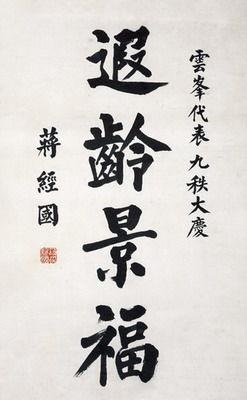 雲峯代表九秩大慶
遐齡景福
蔣經國